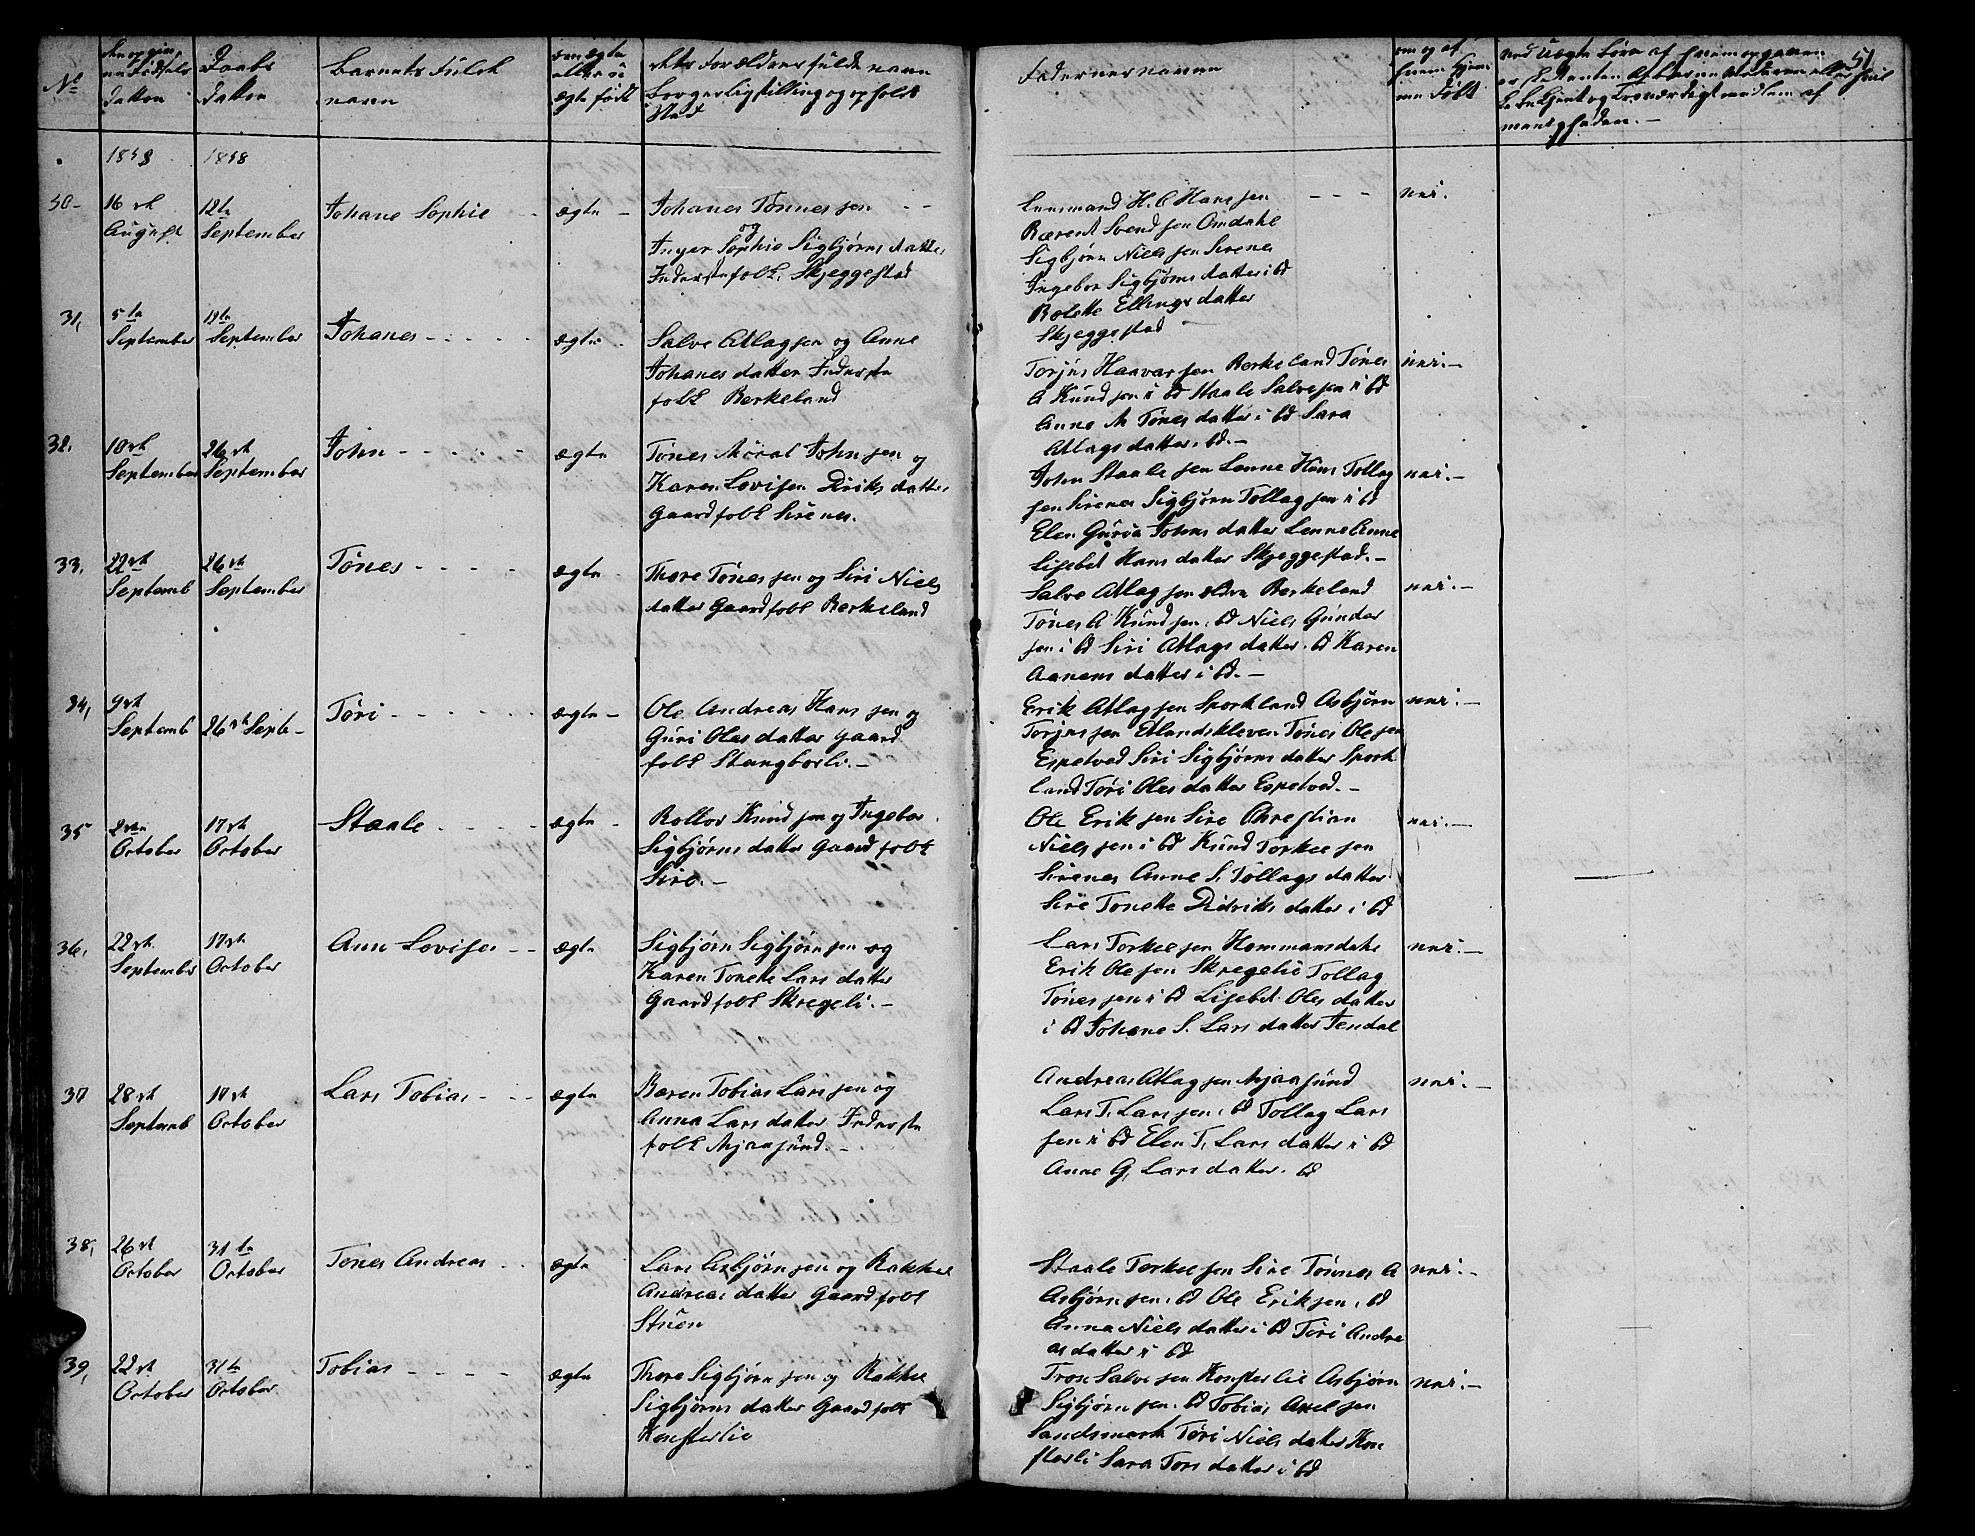 51
No
datten
Daabs
datten
Barnets fulde
navn
ægte født
Stad
Faderner navne
men født
1858
1858
30
16de
August
12te
September
Johane Sophie
ægte
Johanes Tønnesen
og
Inger Sophie Sigbjørns datter
Inderstefolk Skjeggestad
Lensmand H. C. Hansen
Berent Svendsen Omdahl
Sigbjørn Nielsen Sirenes
Ingebor Sigbjørns datter ibd
Bolette Ellings datter
Skjeggestad
nei.
31,
5te
September
19te
September
Johanes
ægte
Salve Atlagsen og Anne
Johanes datter Inderste
folk Berkeland
Torjus Haavarsen Berkeland Tønes
A Knudsen i bd Staale Salvesen i bd
Anne M Tønes datter i bd Sara
Atlags datter i bd.
nei.
32.
10de
September
26de
September
John
ægte
Tønes Møral Johnsen og
Karen Lovisen Diriks datter
Gaardfolk Sirenes.
John Staalesen Lenne Hans Tollag
sen Sirenes Sigbjørn Tollagsen i bd
Elen Guria Johns datter Lenne Anne
Lisebet Hans datter Skjeggestad.
nei.
33,
22de
Septemb
26de
September
Tønes
ægte
Thore Tønessen og Siri Niels
datter Gaardfolk Berkeland
Salve Atlagsen ældre Berkeland
Tønes A Knudsen i bd Niels Gunder
sen i bd Siri Atlags datter i bd Karen
Aanens datter i bd.
nei.
34,
9de
Septemb
26de Septe
Tøri
ægte
Ole Andreas Hansen og
Guri Oles datter gaard
folk Stangborli.
Erik Atlagsen Sporkland Asbjørn
Torjussen Etlandskleven Tønes Olesen
Espetved Siri Sigbjørns datter Spork
land Tøri Oles datter Espetved.
nei.
35
2den
October
17de
October
Staale
ægte
Rollov Knudsen og Ingebor
Sigbjørns datter Gaardfolk
Sire.
Ole Eriksen Sire Christian
Nielsen i bd Knud Torkelsen
Sirenes Anne S. Tollags datter
Sire Tonette Didriks datter i bd
nei.
36,
22de
September
17de
October
Ann Lovise
ægte
Sigbjørn Sigbjørnsen og
Karen Tonette Lars datter
Gaardfolk Skregeli.
Lars Torkelsen Hommansdahl
Erik Olesen Skregelie Tollag
Tønessen i bd Lisebet Oles datter
i bd Johane S. Lars datter Jendal
nei.
37
28de
Septemb
10de
October
Lars Tobias
ægte
Beren Tobias Larssen og
Anna Lars datter Inderste
folk Mjaasund.
Andreas Atlagsen Mjaasund
Lars T. Larssen i bd Tollag Lars
sen i bd Elen T. Lars datter i bd
Anne G, Lars datter i bd
nei.
38,
26de
October
31te
October
Tønes Andreas
ægte
Lars Asbjørnsen og Rakkel
Andreas datter Gaardfolk
Stuen
Staale Torkelsen Sire Tønnes A
Asbjørnsen i bd Ole Eriksen i bd
Anna Niels datter i bd Tøri Andre
as datter i bd
nei.
39,
22de
October
31te
October
Tobias
ægte
Thore Sigbjørnsen og Rakkel
Sigbjørns datter Gaardfolk
Konsterlie
Tron Salvesen Konsterlie Asbjørn
Sigbjørnsen i bd Tobias Axelsen
Sandsmark Tøri Niels datter Kon
sterli Sara Tors datter i bd
nei.